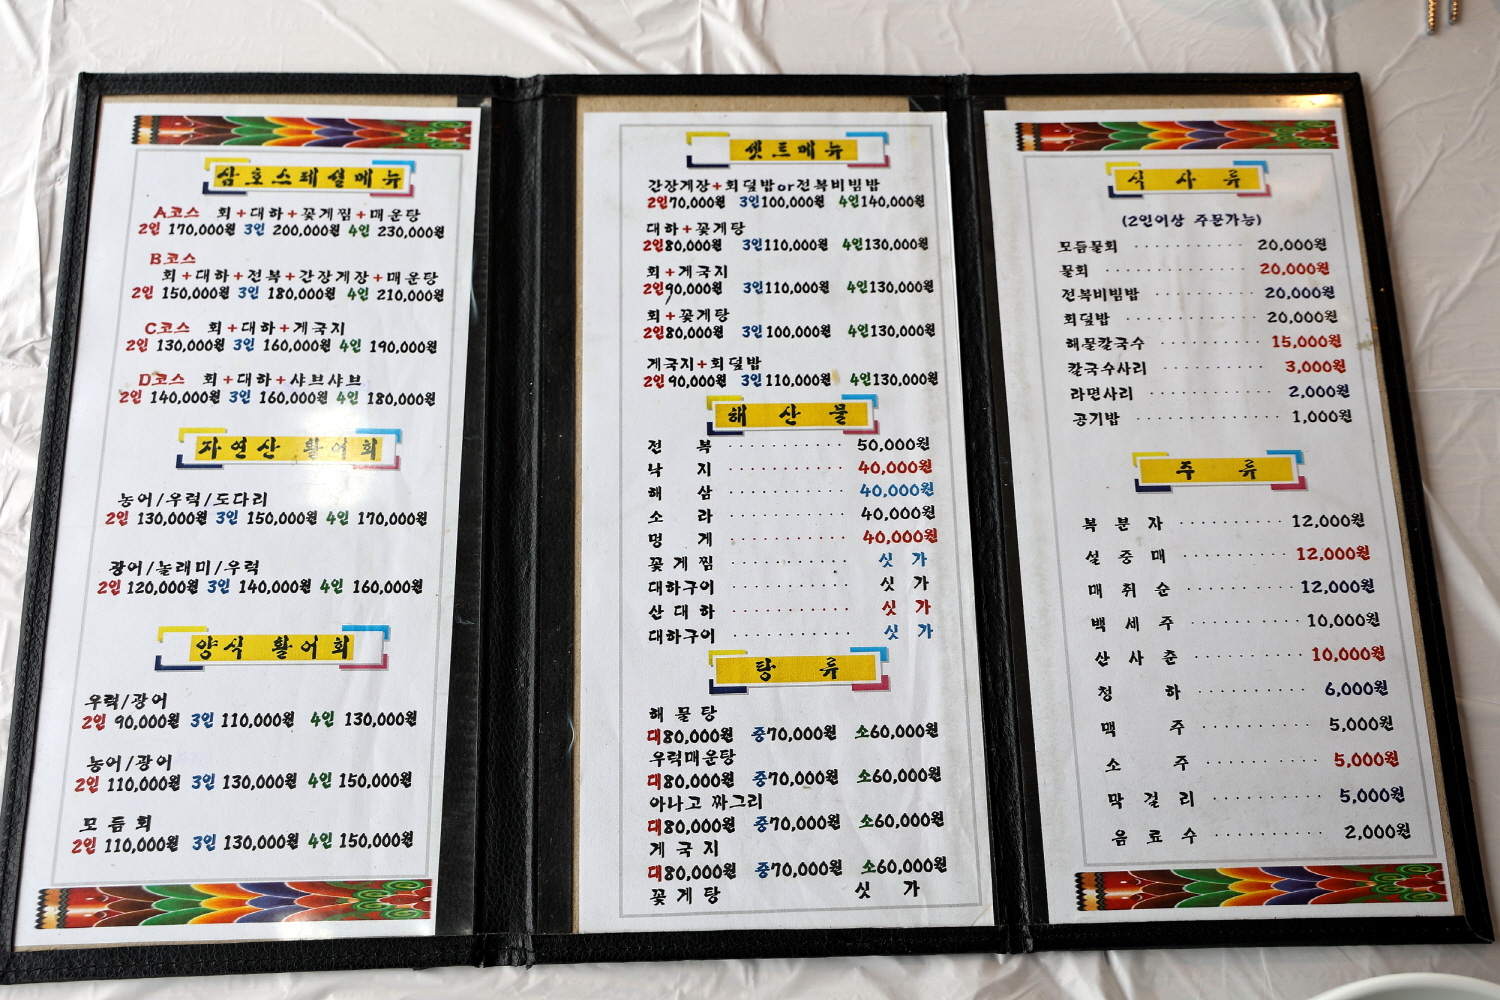 삼호스페셜메뉴
A코스 회+대하+꽃게찜+매운탕
2인 170,000원 3인 200,000원 4인 230,000원
B코스
회+대하+전복+간장게장+매운탕
2인 150,000원 3인 180,000원 4인 210,000원
C코스 회+대하+게국지
2인 130,000원 3인 160,000원 4인 190,000원
D코스 회+대하+샤브샤브
2인 140,000원 3인 160,000원 4인 180,000원
자연산 활어회
농어/우럭/도다리
2인 130,000원 3인 150,000원 4인 170,000원
광어/놀래미/우럭
2인 120,000원 3인 140,000원 4인 160,000원
양식 활어회
우럭/광어
2인 90,000원 3인 110,000원 4인 130,000원
농어/광어
2인 110,000원 3인 130,000원 4인 150,000원
모듬회
2인 110,000원 3인 130,000원 4인 150,000원
셋트메뉴
간장게장+회덮밥or전복비빔밥
2인70,000원 3인100,000원 4인140,000원
대하+꽃게탕
2인80,000원 3인110,000원 4인130,000원
회+게국지
2인90,000원 3인110,000원 4인130,000원
회+꽃게탕
2인80,000원 3인100,000원 4인130,000원
게국지+회덮밥
2인90,000원 3인110,000원 4인130,000원
해산물
전복 ·········· 50,000원
낙지 ·········· 40,000원
해삼 ·········· 40,000원
소라 ·········· 40,000원
멍게 ·········· 40,000원
꽃게찜 ·········· 싯가
대하구이 ·········· 싯가
산대하 ·········· 싯가
대하구이 ·········· 싯가
탕류
해물탕
대80,000원 중70,000원 소60,000원
우럭매운탕
대80,000원 중70,000원 소60,000원
아나고 짜그리
대80,000원 중70,000원 소60,000원
게국지
대80,000원 중70,000원 소60,000원
꽃게탕 싯가
식사류
(2인이상 주문가능)
모듬물회 ·········· 20,000원
물회 ·········· 20,000원
전복비빔밥 ·········· 20,000원
회덮밥 ·········· 20,000원
해물칼국수 ·········· 15,000원
칼국수사리 ·········· 3,000원
라면사리 ·········· 2,000원
공기밥 ·········· 1,000원
주류
복분자 ·········· 12,000원
설중매 ·········· 12,000원
매취순 ·········· 12,000원
백세주 ·········· 10,000원
산사춘 ·········· 10,000원
청하 ·········· 6,000원
맥주 ·········· 5,000원
소주 ·········· 5,000원
막걸리 ·········· 5,000원
음료수 ·········· 2,000원